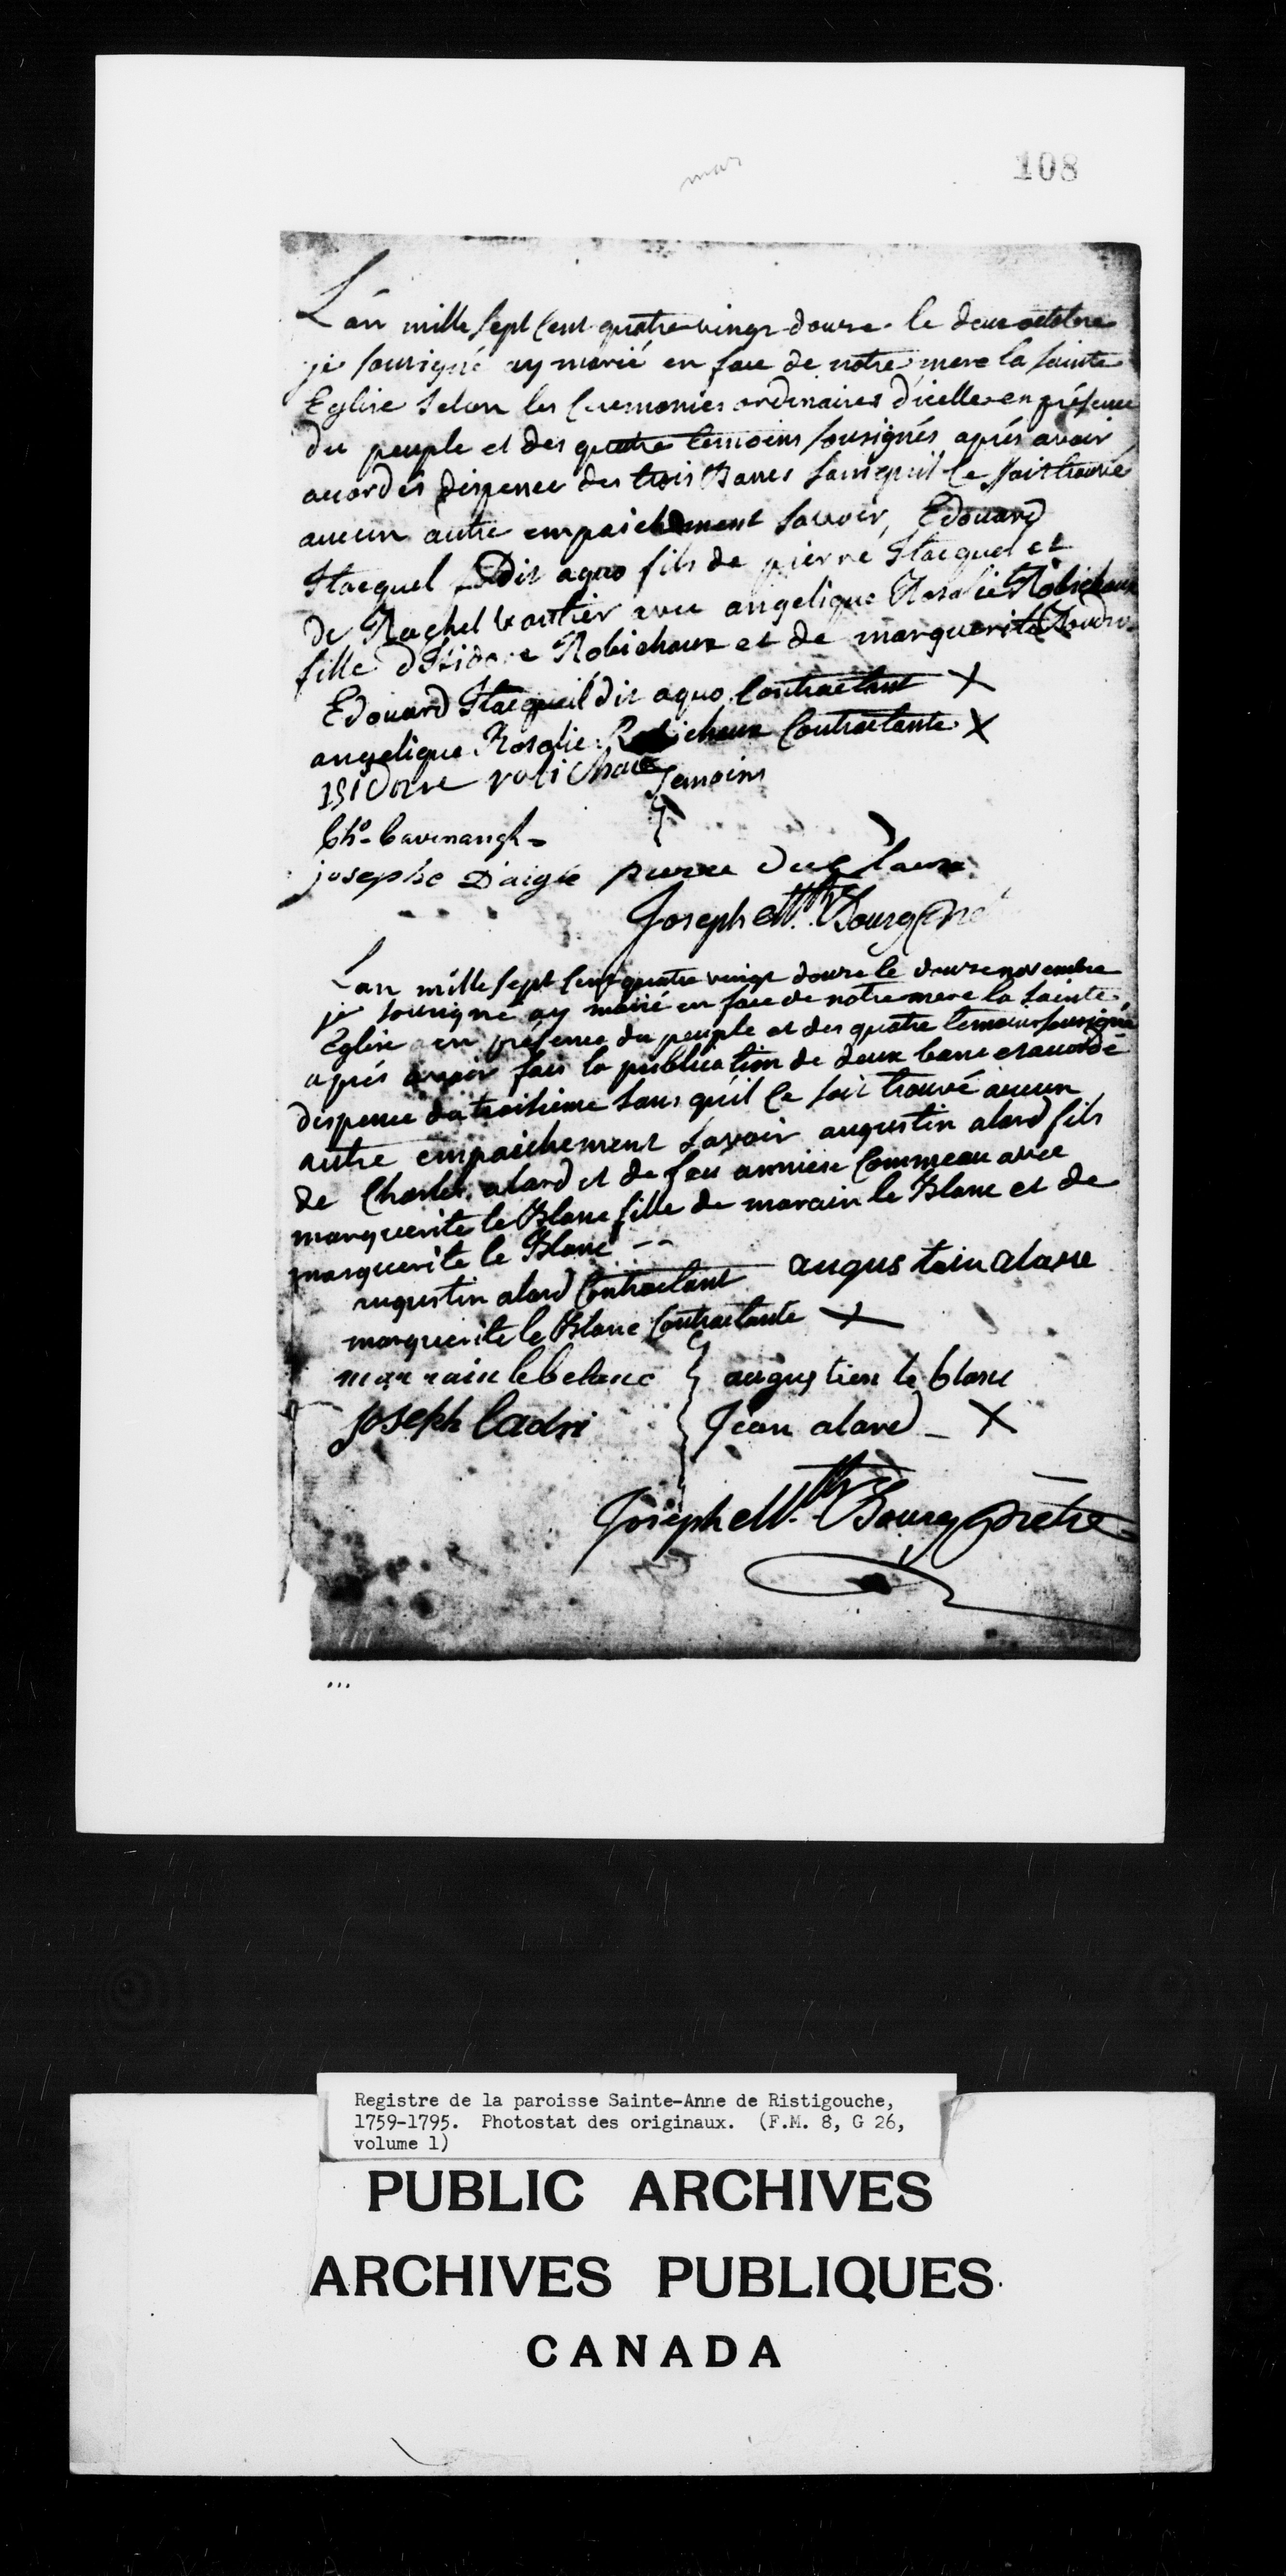 mar
108
L'an mille sept cent quatre vingt douze le deux octobre
je sousigné ay marié en face de notre mere la sainte
Eglise selon les ceremonies ordinaires d'icelle en présence
du peuple et des quatre temoins sousignés aprés avoir
acordés dispence des trois Bancs sans qu'il ce soit trouvé
aucun autre empaichement savoir, Edouard
Hacquel Dit aquo fils de pierre Hacquel et
De Rachel vautier avec angelique Rosalie Robichaux
fille D'Isidore Robichaux et de marguerite
Edouard Hacqueil dit aquo Contractant X
angelique Rosalie Robichaux Contractante X
Isidorre robichau Temoins
Cho. Cavenaugh =
josephe Daigle pierre Duclaux
Joseph Mth. Bourg Pret
Lan mille sept cent quatre vingt douze le douze novembre
je sousigné ay marié en face de notre mere la sainte
Eglise en présence du peuple et des quatre temoins sousigné
aprés avoir fais la publication de deux banc et acordé
dispence du troisieme sans qu'il ce soit trouvé aucun
autre empaichement savoir augustin alard fils
de Charles alard et de feu anniese Commeau avec
marguerite le Blanc fille de marain le Blanc et de
marguerite le Blanc --
augustin alard Contractant augustain alare
marguerite le Blanc Contractante X
marrain lebelanc } augustien le blanc
Joseph Cadri } Jean alard _ X
Joseph Mth. Bourg Prêtre
...
Registre de la paroisse Sainte-Anne de Ristigouche,
1759-1795. Photostat des originaux. (F.M. 8, G 26,
volume 1)
PUBLIC ARCHIVES
ARCHIVES PUBLIQUES
CANADA